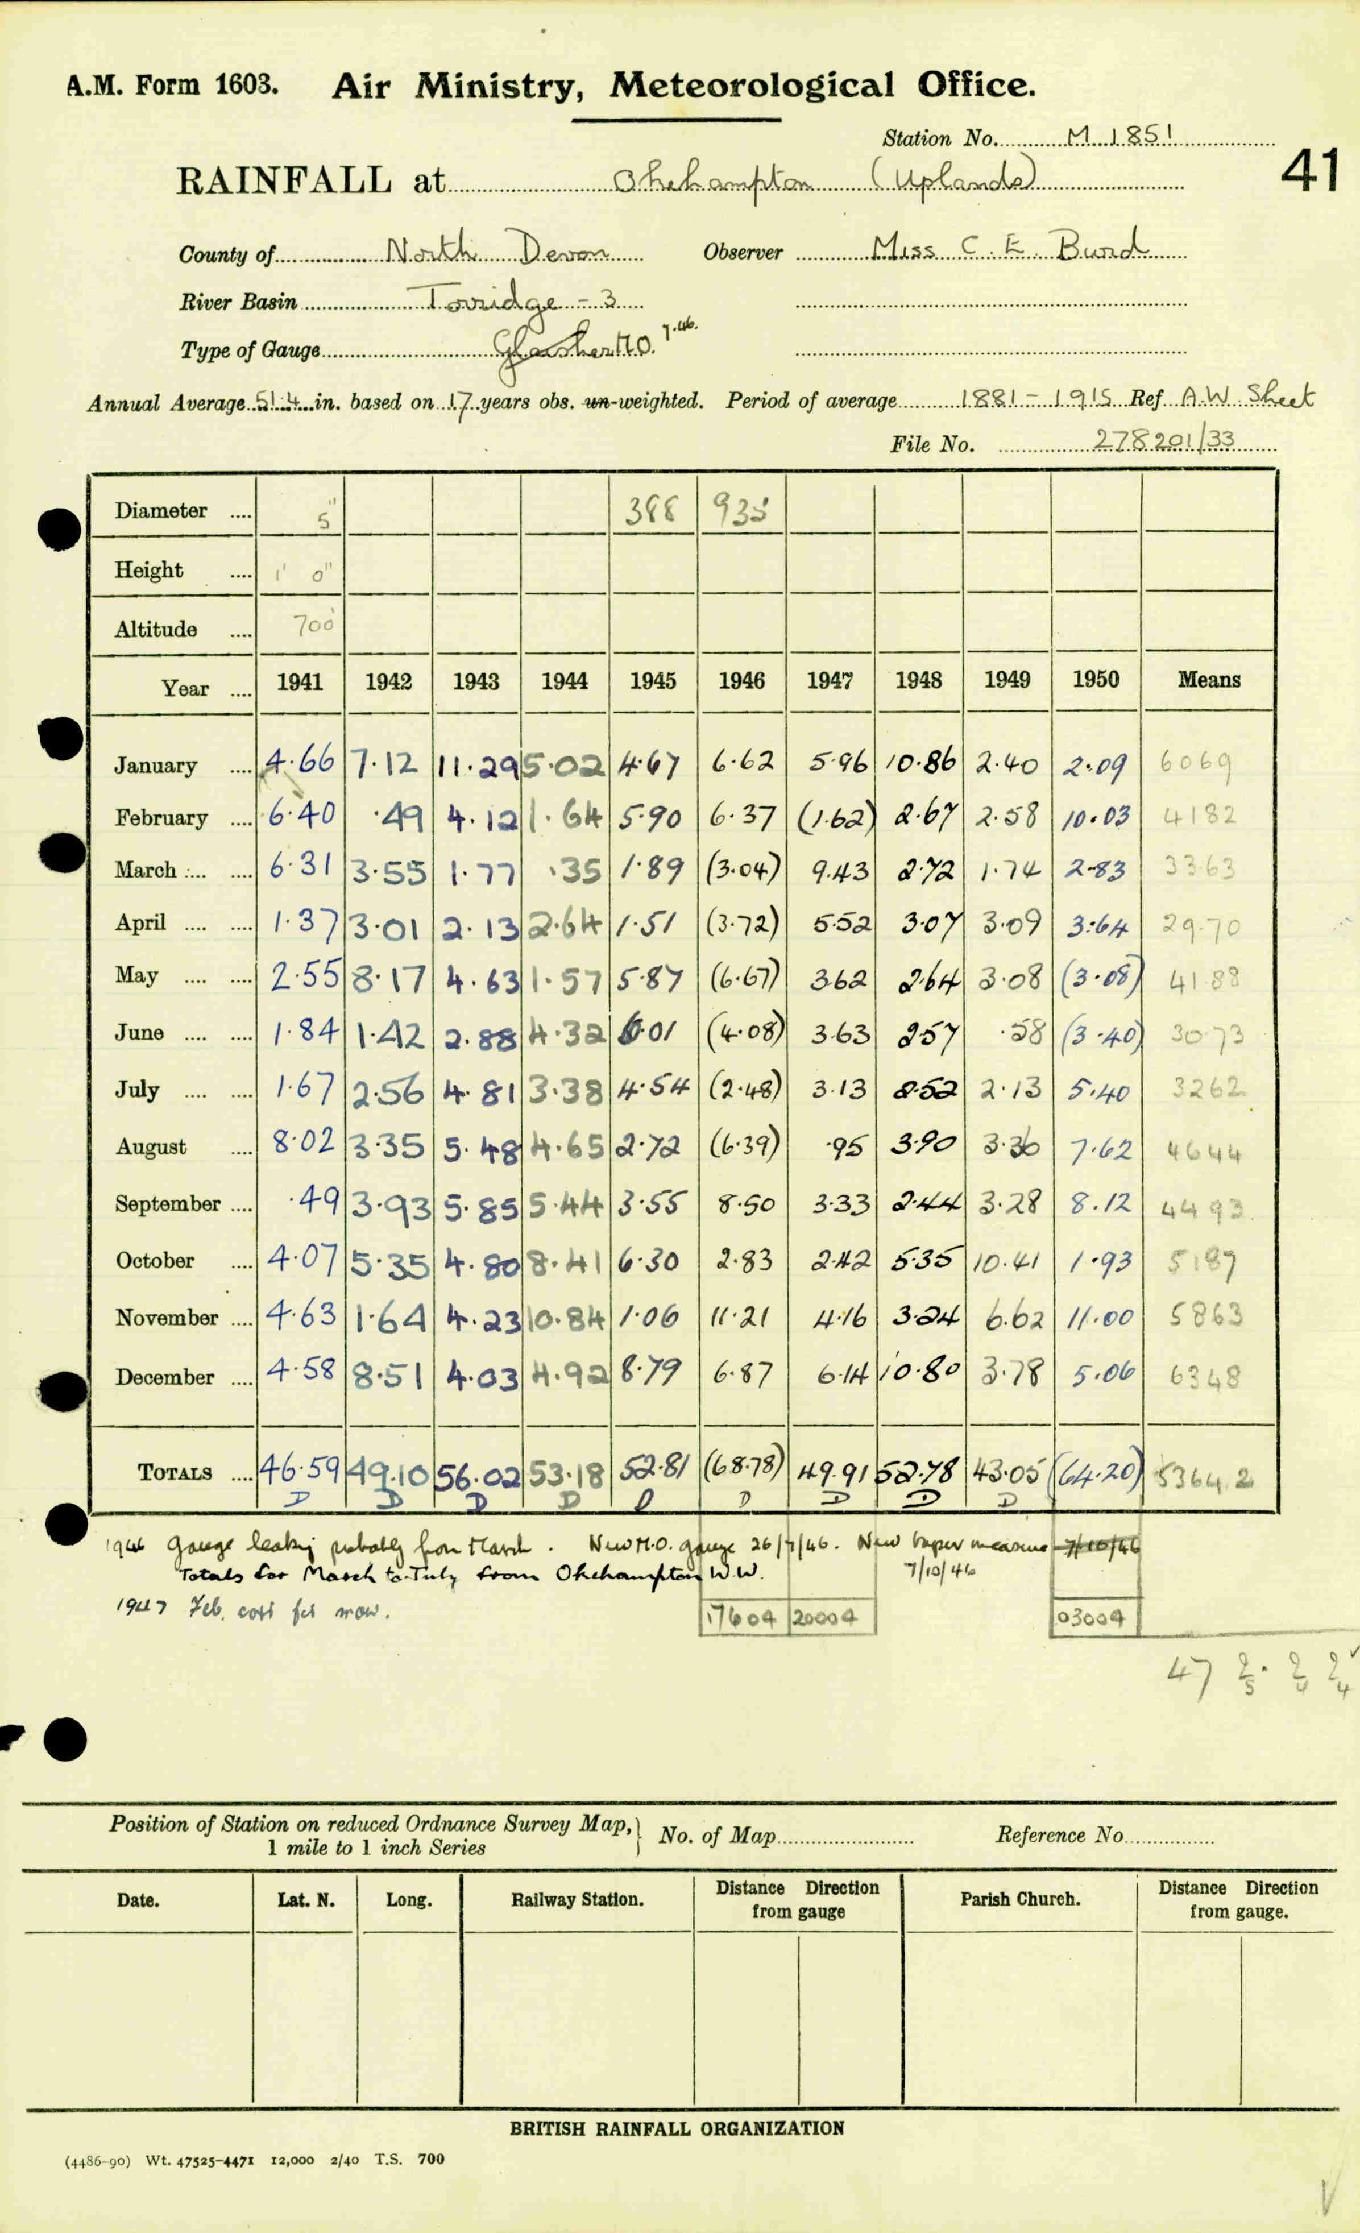 A.M. Form 1603. Air Ministry, Meteorological Office.
Station No. M 1851
41
RAINFALL at Okehampton (Uplands)
County of North Devon Observer Miss C. E. Burd
River Basin Torridge - 3
Type of Gauge Glaisher M.O. 7.46.
Annual Average 51.4 in. based on 17 years obs. un-weighted. Period of average 1881-1915 Ref. A.W. Sheet
File No. 278201/33
Diameter .... 5" 388 935
Height .... 1' 0"
Altitude .... 700'
Year .... 1941 1942 1943 1944 1945 1946 1947 1948 1949 1950 Means
January .... 4.66 7.12 11.29 5.02 4.67 6.62 5.96 10.86 2.40 2.09 6069
February .... 6.40 .49 4.12 1.64 5.90 6.37 (1.62) 2.67 2.58 10.03 4182
March .... .... 6.31 3.55 1.77 .35 1.89 (3.04) 9.43 2.72 1.74 2.83 3363
April .... .... 1.37 3.01 2.13 2.64 1.51 (3.72) 5.52 3.07 3.09 3.64 29.70
May .... .... 2.55 8.17 4.63 1.57 5.87 (6.67) 3.62 2.64 3.08 (3.08) 41.88
June .... .... 1.84 1.42 2.88 4.32 6.01 (4.08) 3.63 2.57 .58 (3.40) 30.73
July .... .... 1.67 2.56 4.81 3.38 4.54 (2.48) 3.13 2.52 2.13 5.40 3262
August .... 8.02 3.35 5.48 4.65 2.72 (6.39) .95 3.90 3.36 7.62 4644
September .... .49 3.93 5.85 5.44 3.55 8.50 3.33 2.44 3.28 8.12 4493
October .... 4.07 5.35 4.80 8.41 6.30 2.83 2.42 5.35 10.41 1.93 5187
November .... 4.63 1.64 4.23 10.84 1.06 11.21 4.16 3.24 6.62 11.00 5863
December .... 4.58 8.51 4.03 4.92 8.79 6.87 6.14 10.80 3.78 5.06 6348
TOTALS .... 46.59 49.10 56.02 53.18 52.81 (68.78) 49.91 52.78 43.05 (64.20) 5364.2
D D D D D D D D D
1946 Gauge leaking probably from March. New M.O. gauge 26/7/46. New taper measure 7/10/46
Totals for March to July from Okehampton W.W. 7/10/46
1947 Feb. for snow.
17604 20004 03004
47
Position of Station on reduced Ordnance Survey Map, 1 mile to 1 inch Series } No. of Map Reference No
Date. Lat. N. Long. Railway Station. Distance Direction from gauge Parish Church. Distance Direction from gauge.
BRITISH RAINFALL ORGANIZATION
(4486-90) Wt. 47525-4471 12,000 2/40 T.S. 700